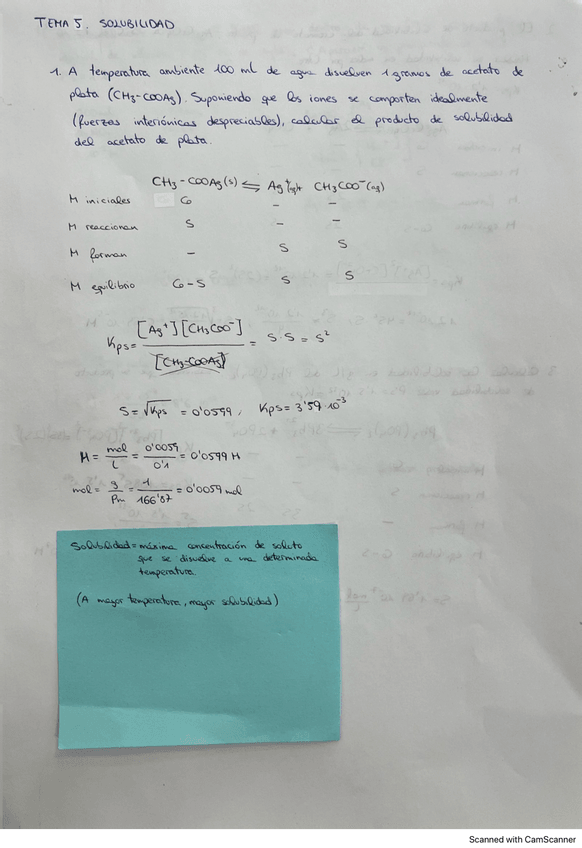 TEMA 5. SOLUBILIDAD
1. A temperatura ambiente 100 ml de agua disuelven 1 gramos de acetato de
plata (CH3-COOAg). Suponiendo que los iones se comporten idealmente
(fuerzas interiónicas despreciables), calcular el producto de solubilidad
del acetato de plata.
CH3-COOAg(s) ⇌ Ag+(aq)+ CH3COO-(aq)
M iniciales Co - -
M reaccionan S - -
M forman - S S
M equilibrio Co-S S S
Kps= [Ag+][CH3COO-] / [CH3-COOAg] = S·S = S²
S=√Kps = 0'0599, Kps= 3'59·10-3
M= mol/L = 0'0059/0'1 = 0'0599 M
mol= g/Pm = 1/166'87 = 0'0059 mol
Solubilidad=máxima concentración de soluto
que se disuelve a una determinada
temperatura.
(A mayor temperatura, mayor solubilidad)
Scanned with CamScanner